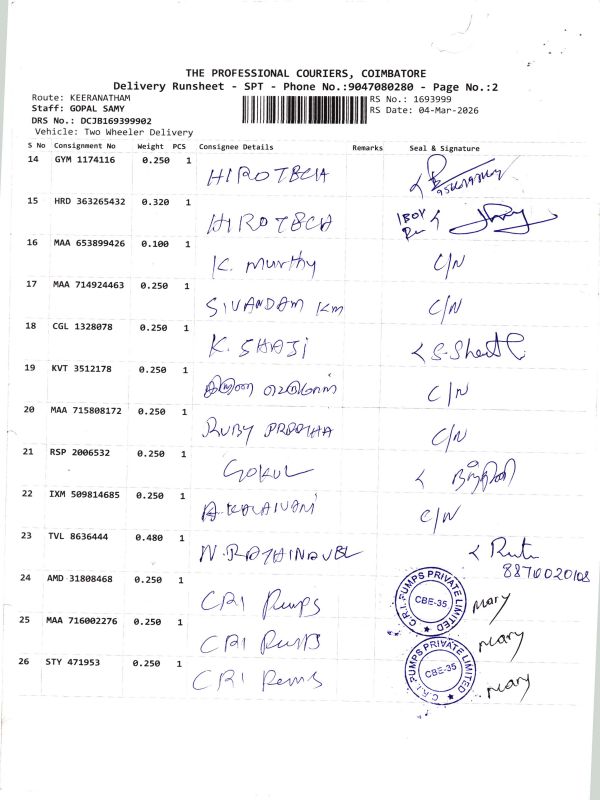 THE PROFESSIONAL COURIERS, COIMBATORE
Delivery Runsheet - SPT - Phone No.:9047080280 - Page No.:2
Route: KEERANATHAM
RS No.: 1693999
Staff: GOPAL SAMY
RS Date: 04-Mar-2026
DRS No.: DCJB169399902
Vehicle: Two Wheeler Delivery
S No Consignment No Weight PCS Consignee Details Remarks Seal & Signature
14 GYM 1174116 0.250 1 HIROTECH
15 HRD 363265432 0.320 1 HIROTECH 1 BOX
16 MAA 653899426 0.100 1 K. Murthy C/N
17 MAA 714924463 0.250 1 SIVANDAM KM C/N
18 CGL 1328078 0.250 1 K. SHAJI
19 KVT 3512178 0.250 1 C/N
20 MAA 715808172 0.250 1 RUBY C/N
21 RSP 2006532 0.250 1 GOKUL
22 IXM 509814685 0.250 1 A. KALAIVANI C/N
23 TVL 8636444 0.480 1 N. RATHINAVEL
8870020108
24 AMD 31808468 0.250 1 CRI Pumps C.R.I. PUMPS PRIVATE LIMITED CBE-35 Mary
25 MAA 716002276 0.250 1 CRI Pumps Mary
26 STY 471953 0.250 1 CRI Pumps C.R.I. PUMPS PRIVATE LIMITED CBE-35 Mary